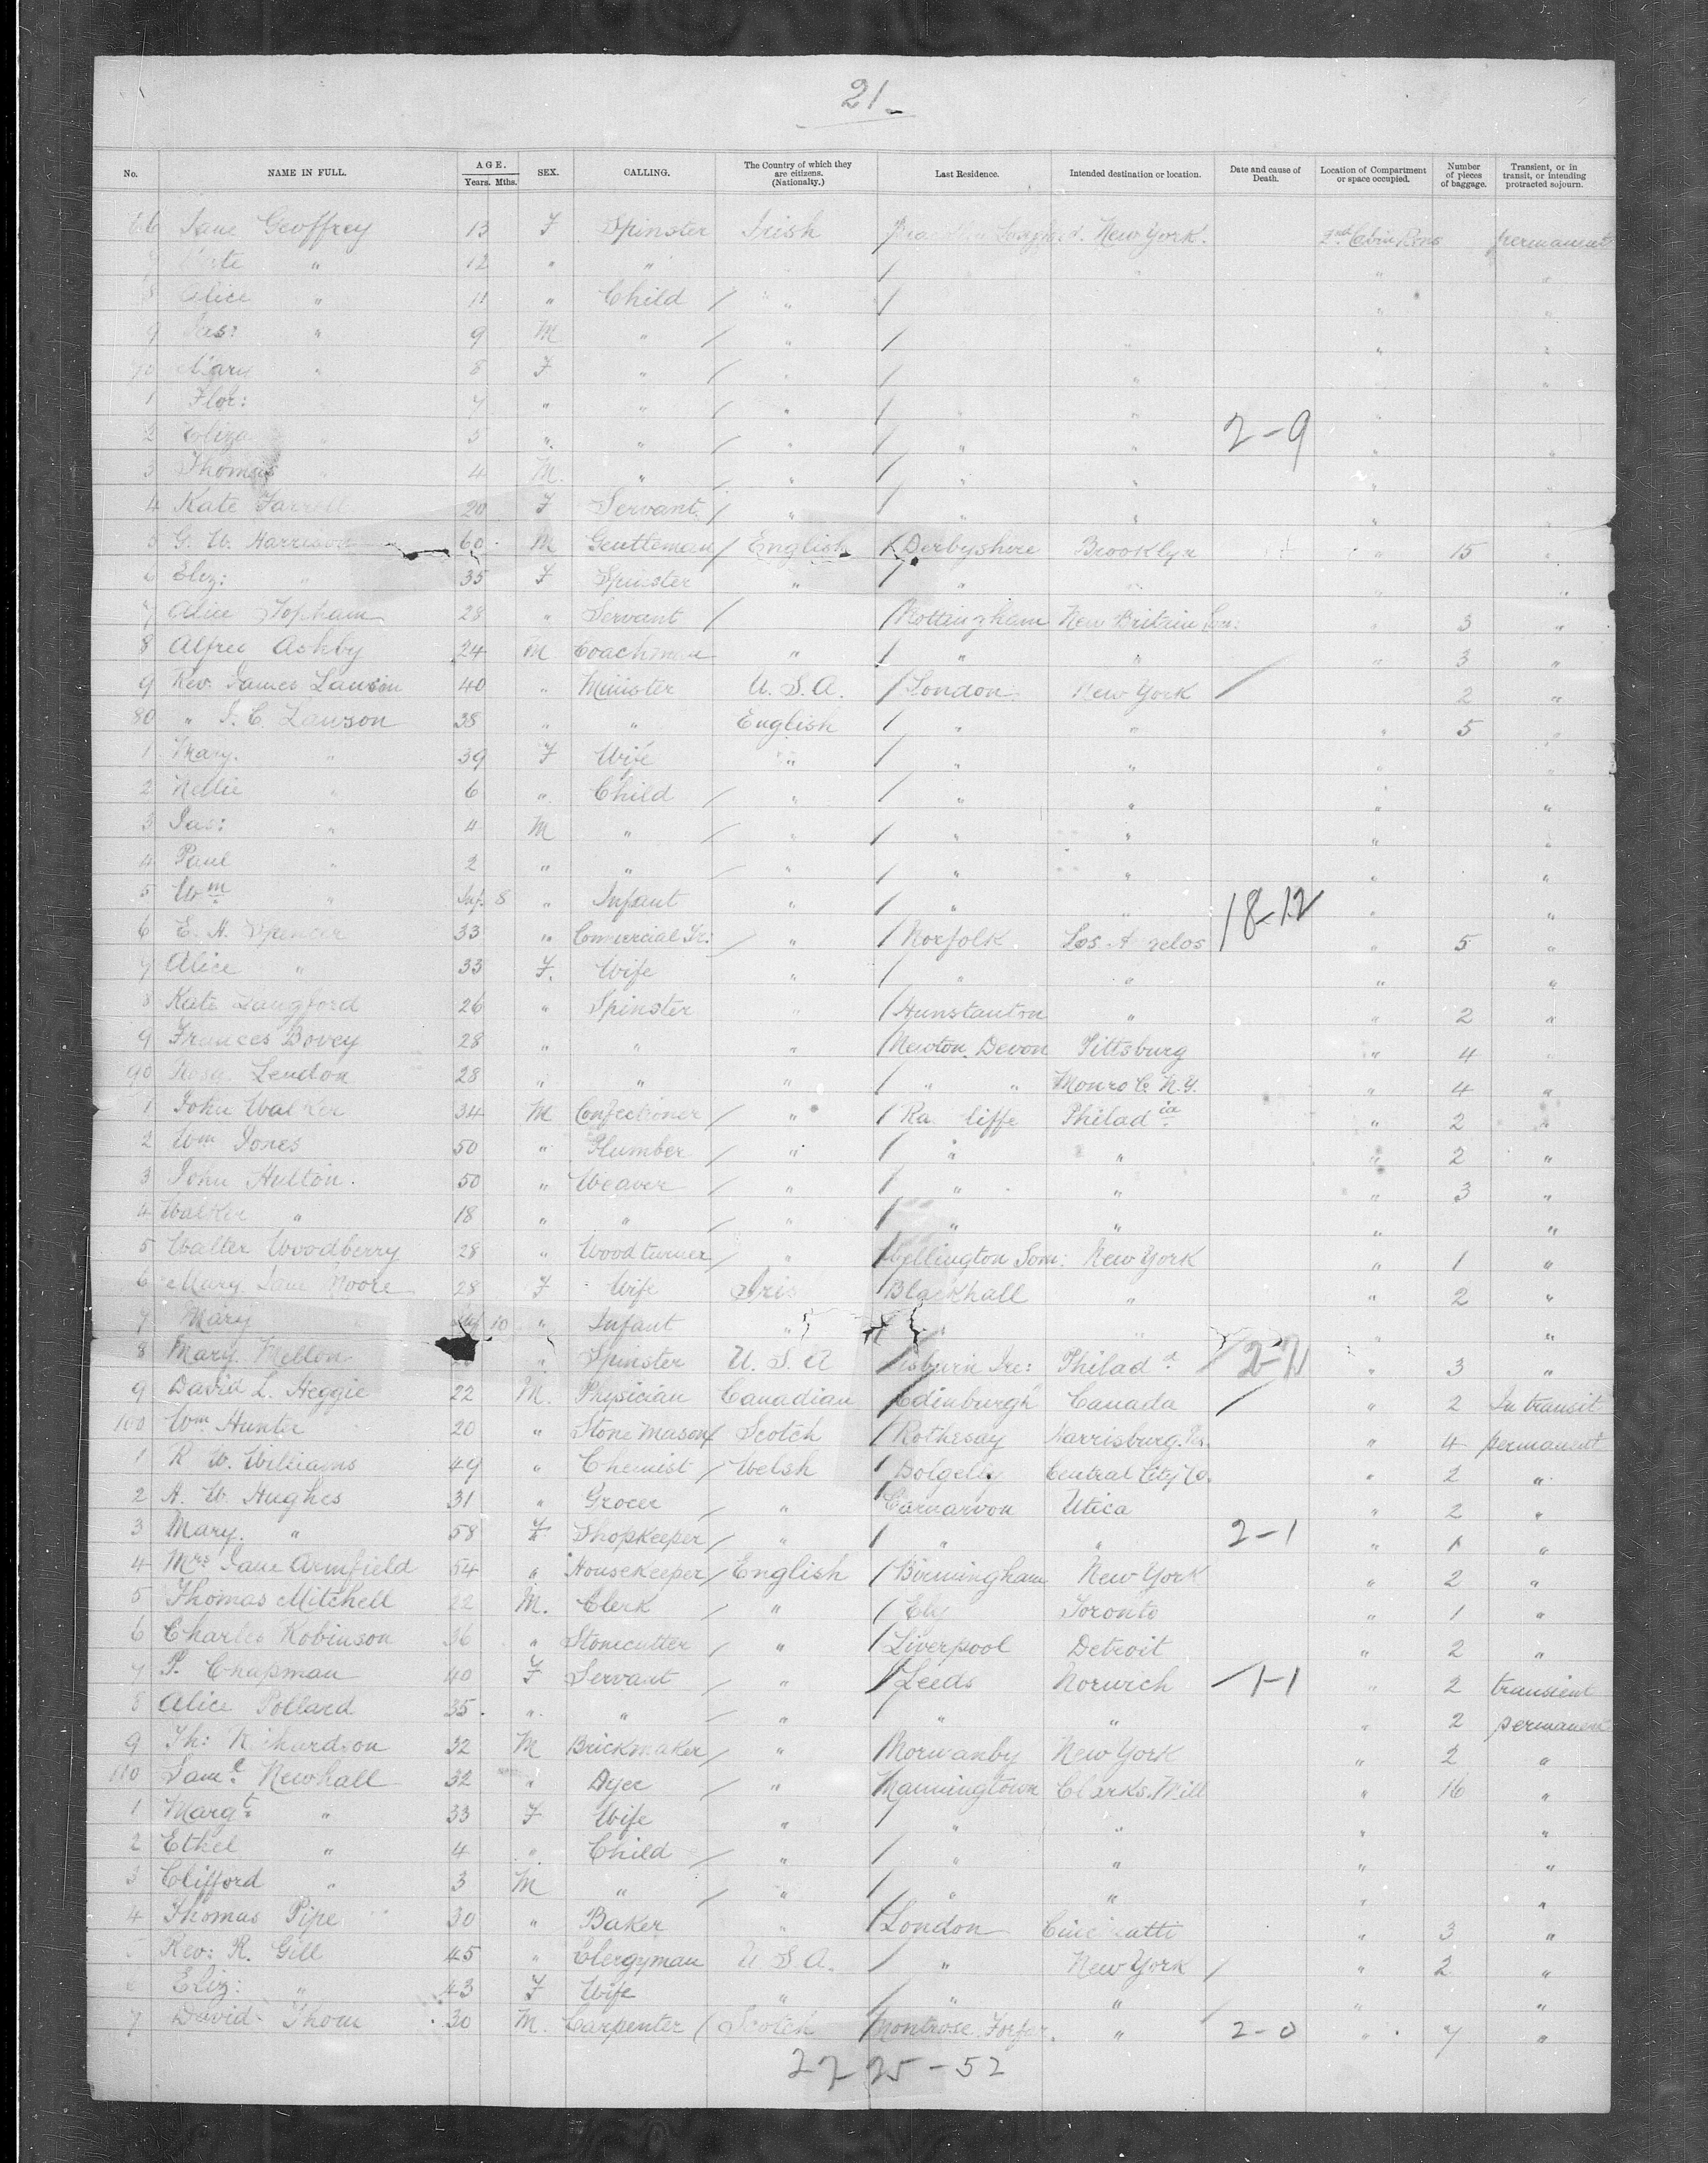 21
No. NAME IN FULL. AGE. Years. Mths. SEX. CALLING. The Country of which they are citizens. (Nationality.) Last Residence. Intended destination or location. Date and cause of Death. Location of Compartment or space occupied. Number of pieces of baggage. Transient, or in transit, or intending protracted sojourn.
66 Jane Geoffrey 13 F Spinster Irish New York. 2nd Cabin permanent
12 " "
8 Alice " 11 " Child / " / " "
9 Jas: " 9 M " / " / " " "
Mary " 8 F " / " / " "
1 Flor: 7 " " / " / " " "
2 Eliza " 5 " " / " / " " 2-9 " "
3 Thomas " 4 M. " / " / " " " "
4 Kate Farrell 20 F Servant. / " / " " " "
5 G. W. Harrison 60 M Gentleman / English / Derbyshire Brooklyn " 15 "
6 Eliz: " 35 F Spinster " / " " "
7 Alice Topham 28 " Servant / / Nottingham New Britain Con: " 3 "
8 Alfred Ashby 24 M Coachman " / " " " 3 "
9 Rev. James Lawson 40 " Minister U. S. A. / London New York / 2 "
80 " J. C. Lawson 38 " " English / " " " 5 "
1 Mary. " 39 F Wife " / " " " "
2 Nellie " 6 " Child / " / " " " "
3 Jas: " 4 M " / " / " " " "
4 Paul " 2 " " / " / " " " "
5 Wm " Inf. 8 " Infant " / " " 18-12 " "
6 E. A. Spencer 33 " Commercial Tr: / " / Norfolk Los A elos " 5 "
7 Alice " 33 F. Wife " / " " " "
8 Kate Langford 26 " Spinster " / Hunstanton " " 2 "
9 Frances Bovey 28 " " " / Newton, Devon Pittsburg " 4 "
90 Lendon 28 " " " / " " Monro C N.Y. " 4 "
1 John Walker 34 M Confectioner / " / Ra liffe Philad ia " 2 "
2 Wm Jones 50 " Plumber / " / " " " 2 "
3 John Hulton. 50 " Weaver / " / " " " 3 "
4 Walker " 18 " " / " / " " " "
5 Walter Woodberry 28 " Wood turner / " / Wellington Som: New York " 1 "
6 Mary Jane Moore 28 F Wife Iris / Blackhall " " 2 "
7 Mary " Inf 10 " Infant " / " " " "
8 Mary Mellon " Spinster U. S. A / isburn Ire: Philad a / 2-71 " 3 "
9 David L. Heggie 22 M. Physician Canadian / Edinburgh Canada / " 2 In transit
100 Wm Hunter 20 " Stone Mason / Scotch / Rothesay Harrisburg. Pa. " 4 permanent
1 R W. Williams 49 " Chemist / Welsh / Dolgelly Central City Co. " 2 "
2 A. W. Hughes 31 " Grocer / " / Carnarvon Utica " 2 "
3 Mary. " 58 F Shopkeeper / " / " " 2-1 " 1 "
4 Mrs Jane Armfield 54 " Housekeeper / English / Birmingham New York " 2 "
5 Thomas Mitchell 22 M. Clerk / " / Ely Toronto " 1 "
6 Charles Robinson 36 " Stonecutter / " / Liverpool Detroit " 2 "
7 P. Chapman 40 F Servant / " / Leeds Norwich / 1-1 " 2 transient
8 Alice Pollard 35. " " / " " " " 2 permanent
9 Th: Richardson 32 M Brickmaker / " / Normanby New York " 2 "
110 Saml Newhall 32 " Dyer / " / Manningtown Clarks. Mill " 16 "
1 Margt " 33 F Wife " " " " "
2 Ethel " 4 " Child / " / " " " "
3 Clifford " 3 M " / " / " " " "
4 Thomas Pipe 30 " Baker " / London Cincinatti " 3 "
5 Rev: R. Gill 45 " Clergyman U. S. A. / " New York / " 2 "
6 Eliz: " 43 F Wife " / " " / " "
7 David Thom 30 M. Carpenter / Scotch / Montrose. Forfar. " 2-0 " 7 "
27 25-52